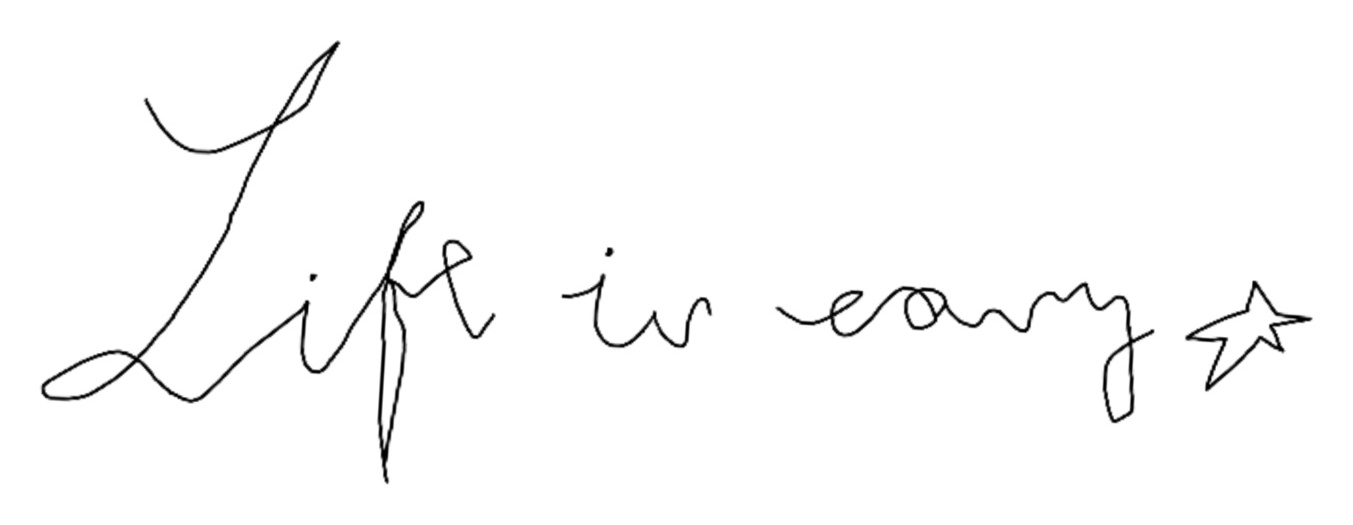 Life is easy